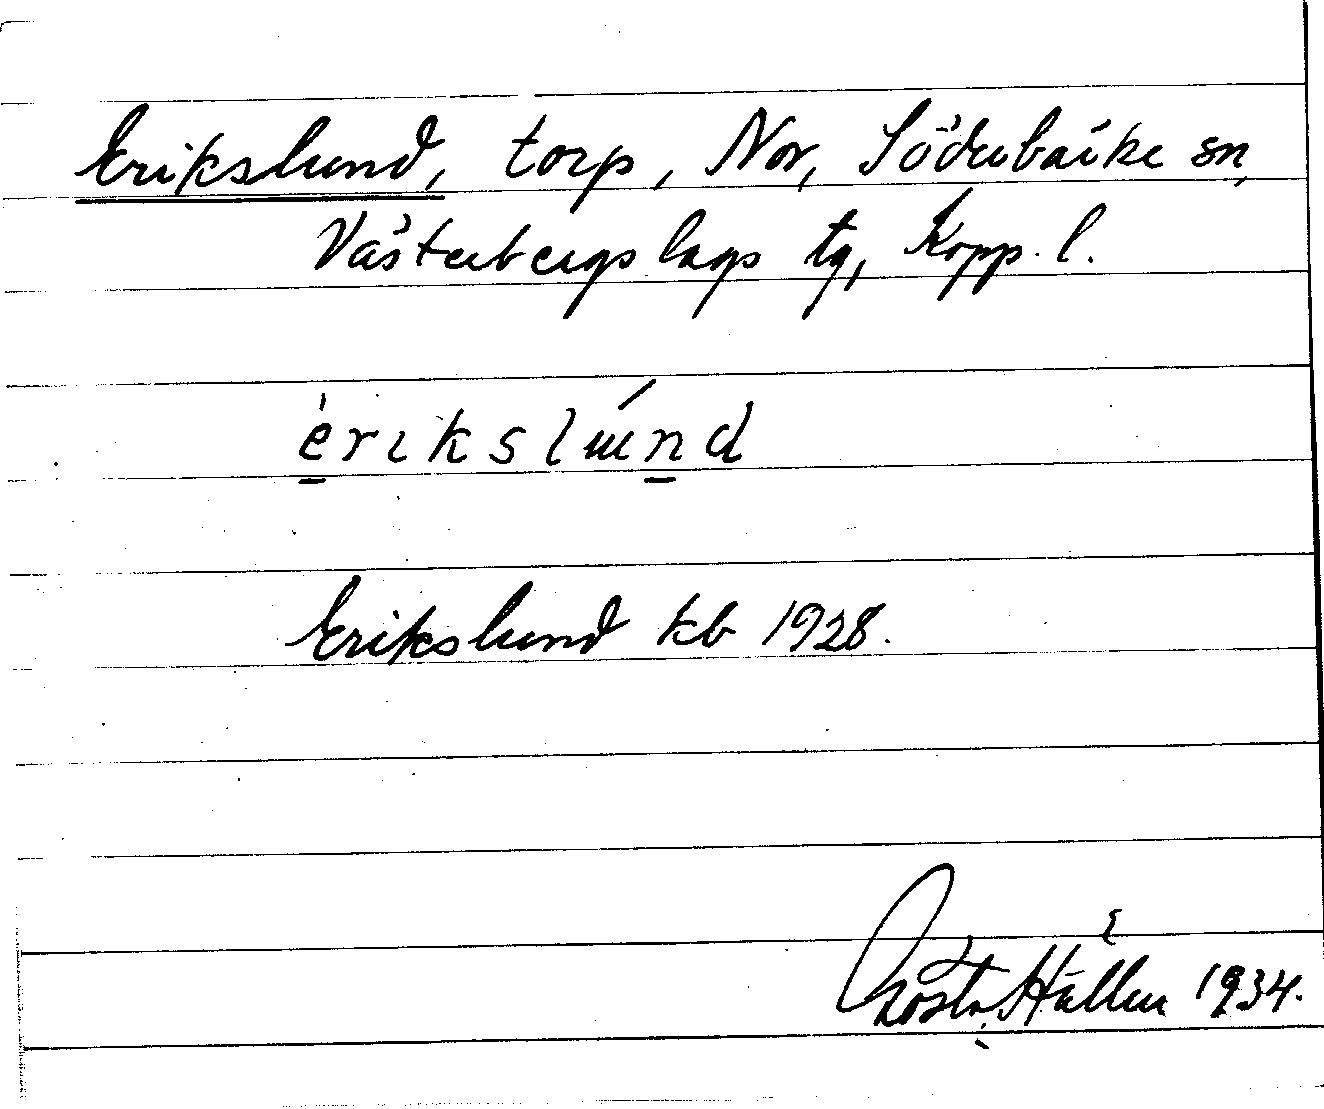 Erikslund, torp, Nor, Söderbärke sn,
Västerbergslags tg, Kopp. l.
èrikslund
Erikslund kb 1928.
Gösta Hallén 1934.